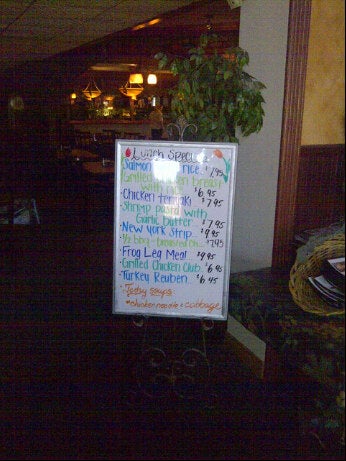 Lunch Specials
Salmon rice $7.95
Grilled chicken breast
with $6.95
Chicken teriyaki $7.95
Shrimp pasta with
Garlic butter $7.95
New York Strip $9.95
1/2 bbq - broasted ch $7.95
Frog Leg Meal $9.95
Grilled Chicken Club $6.95
Turkey Reuben $6.45
Today soups
chicken noodle & cabbage